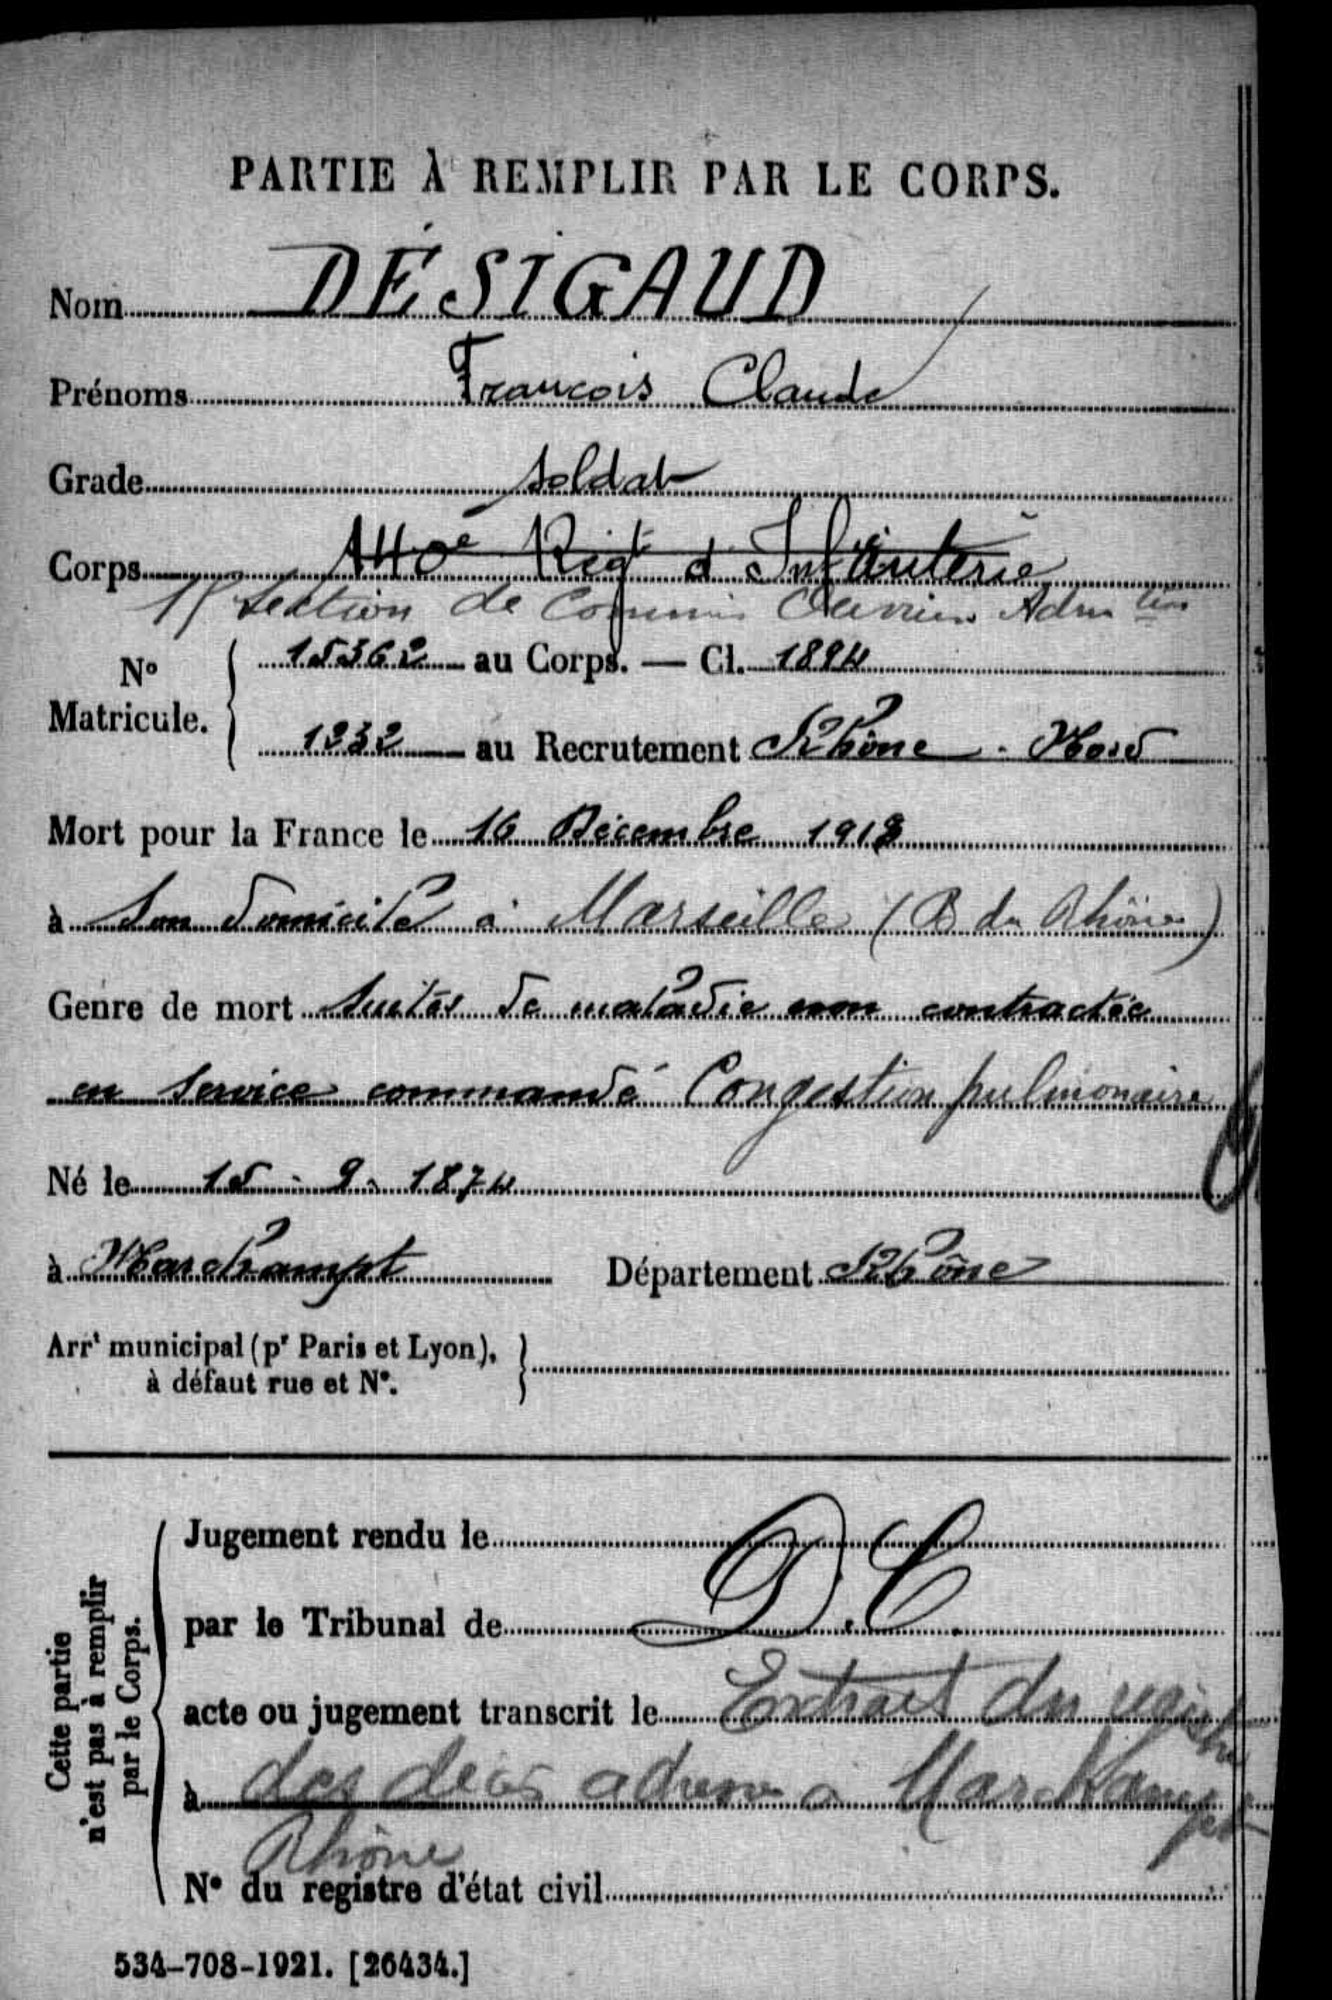 PARTIE À REMPLIR PAR LE CORPS.
Nom DÉSIGAUD
Prénoms François Claude
Grade soldat
Corps 140e Regt d'Infanterie
Section de Commis Ouvriers Admtion
No Matricule. 15362 au Corps. — Cl. 1894
1232 au Recrutement Rhône - Nord
Mort pour la France le 16 Décembre 1918
à son domicile à Marseille (B du Rhône)
Genre de mort suites de maladie non contractée
en service commandé Congestion pulmonaire
Né le 15 - 9 - 1874
à Marchampt Département Rhône
Arrt municipal (pr Paris et Lyon),
à défaut rue et No.
Cette partie n'est pas à remplir par le Corps.
Jugement rendu le D.C.
par le Tribunal de
acte ou jugement transcrit le Extrait du registre
à des décès à Marchampt
Rhône
No du registre d'état civil
534-708-1921. [26434.]